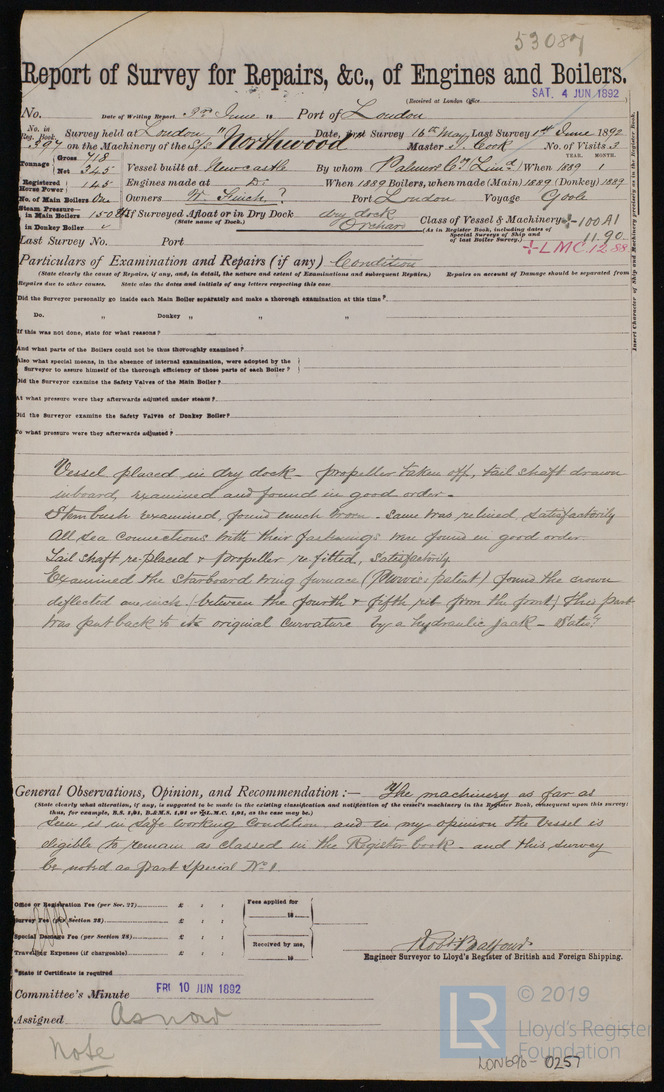 53087
Report of Survey for Repairs, &c., of Engines and Boilers.
(Received at London Office
SAT. 4 JUN 1892
No. Date of Writing Report 3rd June 18 Port of London
No. in Reg. Book. 397 Survey held at London Date, first Survey 16th May Last Survey 1st June 1892
on the Machinery of the S/S "Northwood" Master J. Cook No. of Visits 3
Tonnage Gross 718 Net 345 Vessel built at Newcastle By whom Palmers Co. (Limd) When YEAR. 1889 MONTH. 1
Registered Horse Power 145 Engines made at Do. When 1889 Boilers, when made (Main) 1889 (Donkey) 1889
No. of Main Boilers One Owners W. Finch ? Port London Voyage Goole
Steam Pressure in Main Boilers 150 lbs If Surveyed Afloat or in Dry Dock dry dock
(State name of Dock.) Orchard
in Donkey Boiler
Class of Vessel & Machinery 100 A1
(As in Register Book, including dates of Special Surveys of Ship and of last Boiler Survey.) 11.90
L.M.C. 12.88
Last Survey No. Port
Particulars of Examination and Repairs (if any) Condition
(State clearly the cause of Repairs, if any, and, in detail, the nature and extent of Examinations and subsequent Repairs.) Repairs on account of Damage should be separated from
Repairs due to other causes. State also the dates and initials of any letters respecting this case
Did the Surveyor personally go inside each Main Boiler separately and make a thorough examination at this time?
Do. „ Donkey „ „ „
If this was not done, state for what reasons?
And what parts of the Boilers could not be thus thoroughly examined?
Also what special means, in the absence of internal examination, were adopted by the
Surveyor to assure himself of the thorough efficiency of those parts of each Boiler?
Did the Surveyor examine the Safety Valves of the Main Boiler?
At what pressure were they afterwards adjusted under steam?
Did the Surveyor examine the Safety Valves of Donkey Boiler?
To what pressure were they afterwards adjusted?
Insert Character of Ship and Machinery precisely as in the Register Book.
Vessel placed in dry dock - propeller taken off, tail shaft drawn
inboard, examined and found in good order -
Stern bush examined, found much worn - same was relined, satisfactorily
All sea connections with their fastenings were found in good order
Tail shaft re-placed & propeller re-fitted, satisfactorily
Examined the starboard wing furnace (Purves's patent) found the crown
deflected one inch (between the fourth & fifth rib from the front) this part
was put back to its original curvature by a hydraulic jack - Satisy
General Observations, Opinion, and Recommendation :— The machinery as far as
(State clearly what alteration, if any, is suggested to be made in the existing classification and notification of the vessel's machinery in the Register Book, consequent upon this survey;
thus, for example, B.S. 1,91, B.&M.S. 1,91 or L.M.C. 1,91, as the case may be.)
seen is in safe working condition and in my opinion the vessel is
eligible to remain as classed in the Register book - and this survey
be noted as part special No 1
Office or Registration Fee (per Sec. 27) £ : :
Survey Fee (per Section 28) £ : :
Special Damage Fee (per Section 28) £ : :
Travelling Expenses (if chargeable) £ : :
Fees applied for
18
Received by me,
18
Robt Balfour
Engineer Surveyor to Lloyd's Register of British and Foreign Shipping.
*State if Certificate is required
Committee's Minute FRI. 10 JUN 1892
Assigned As now
Note
LR © 2019
Lloyd's Register
Foundation
LON696-0257